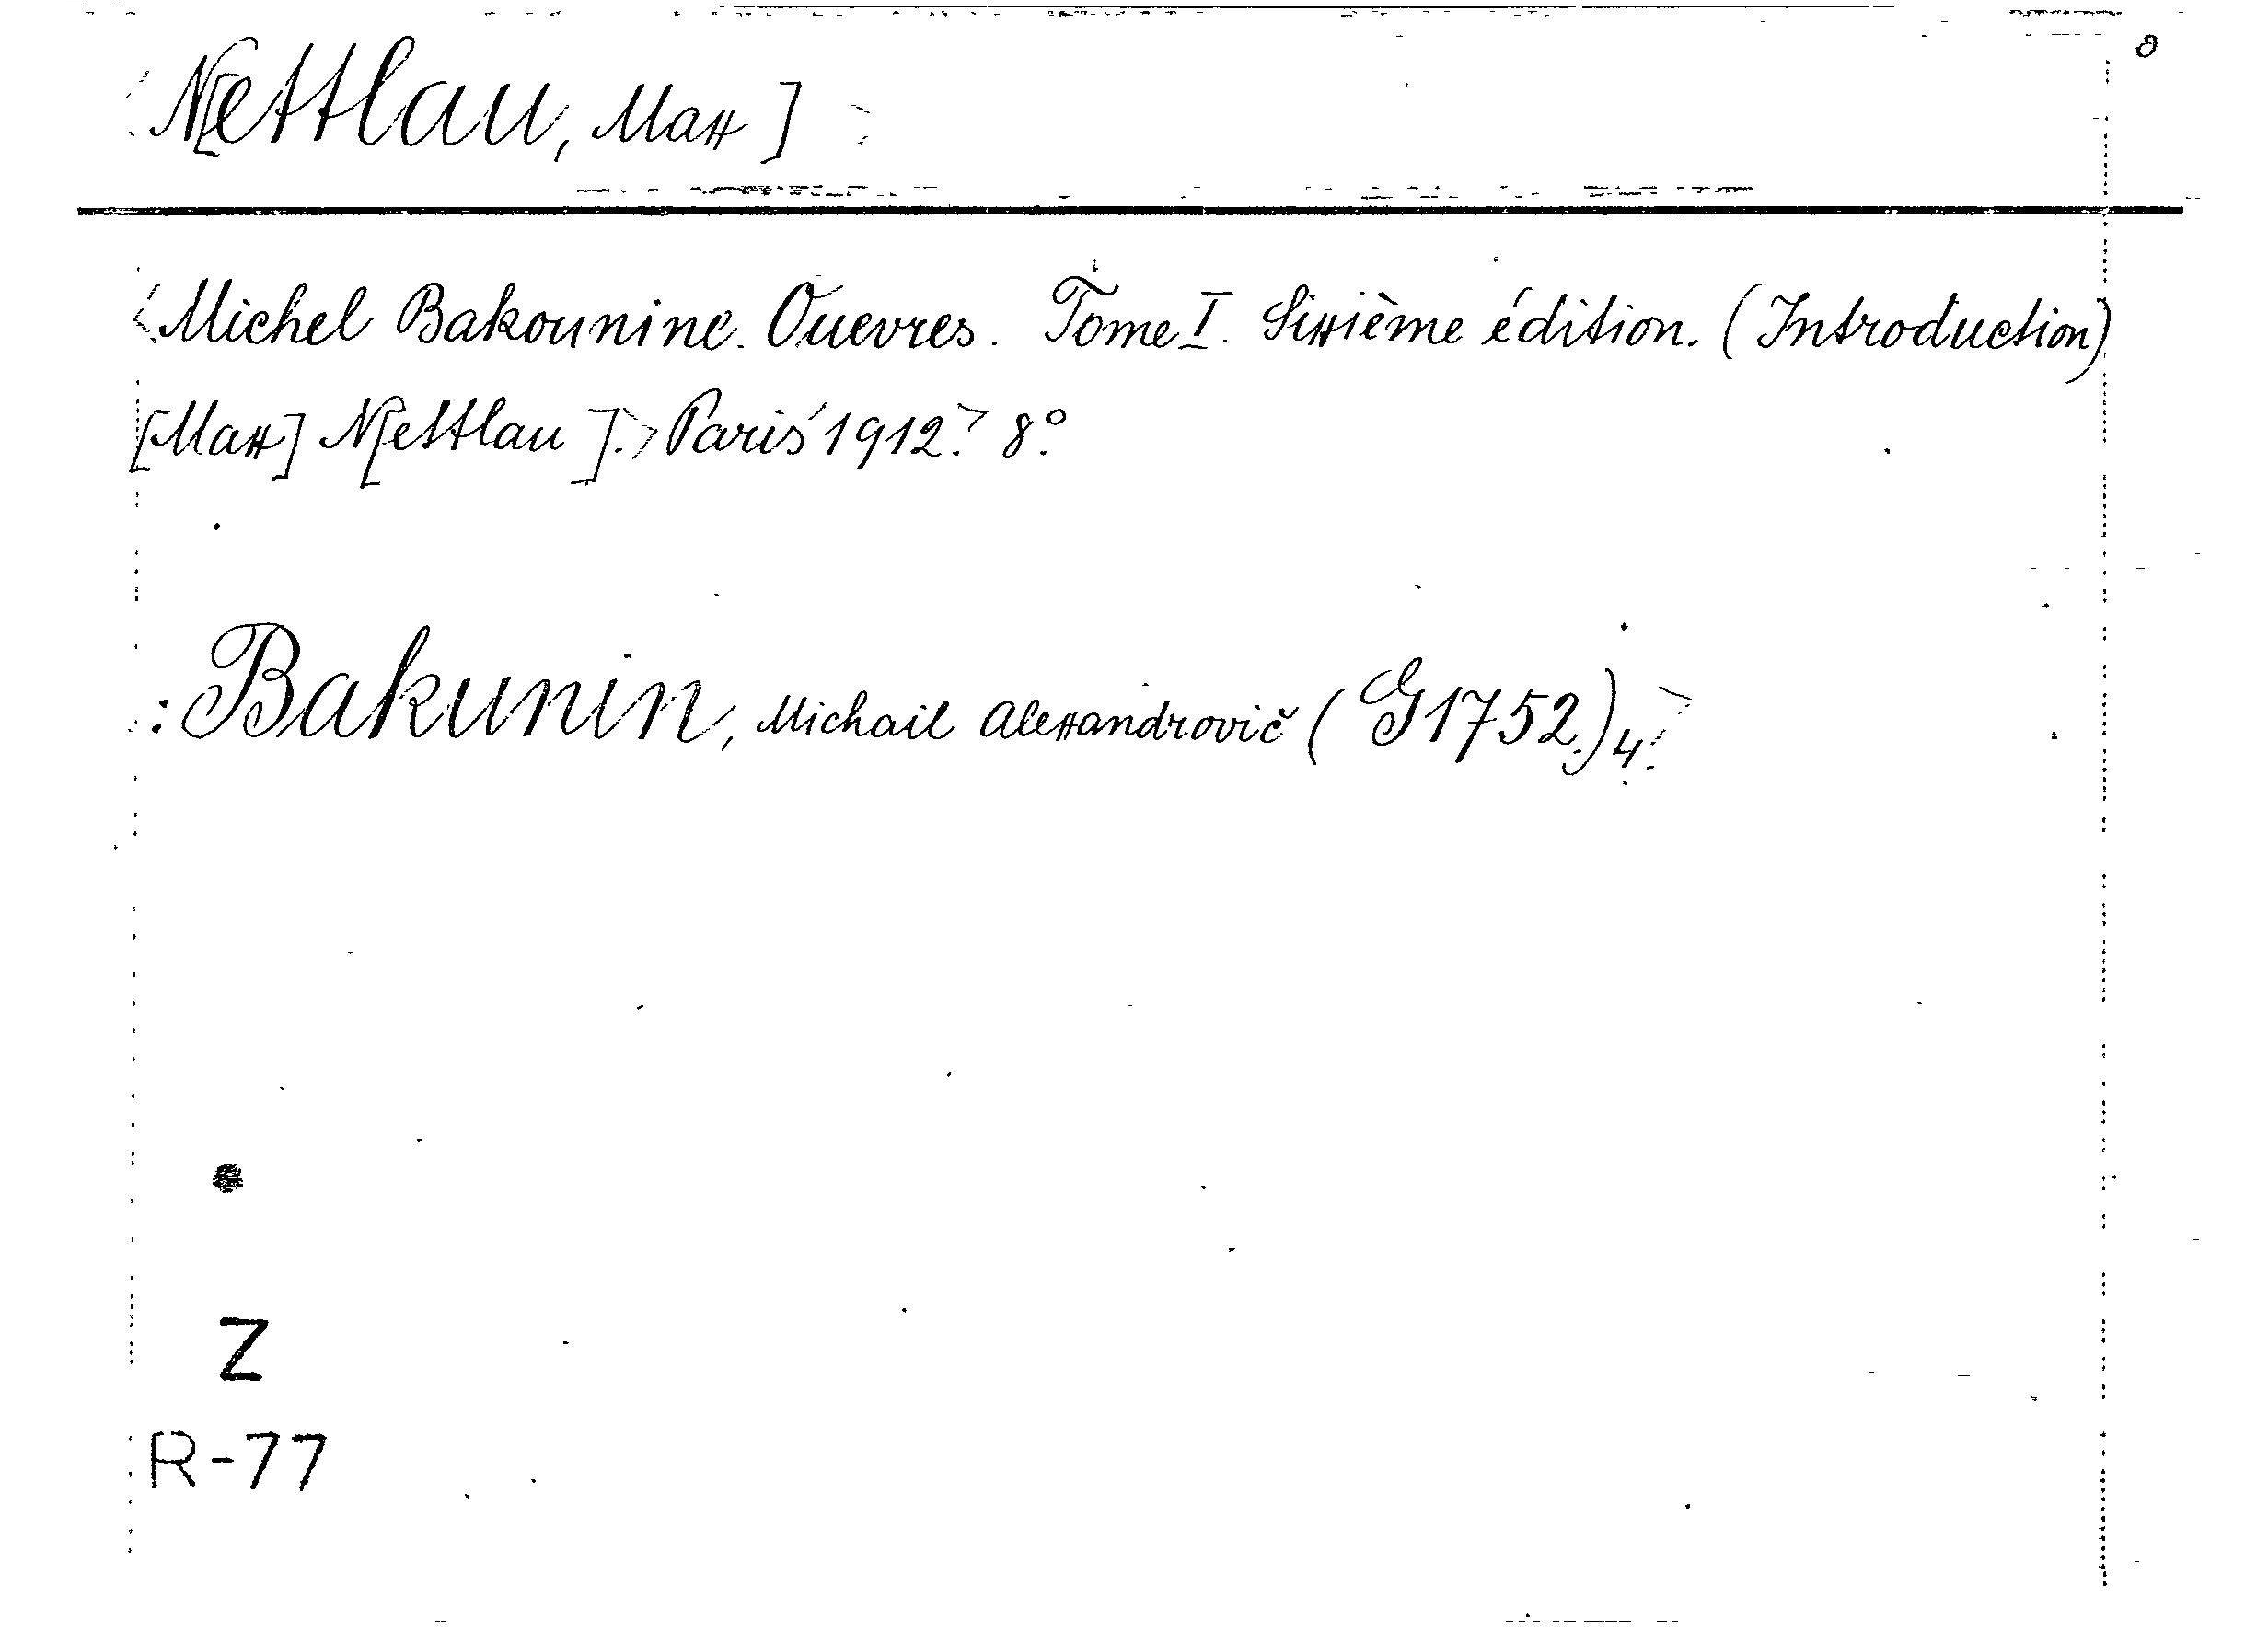 N[ettlau, Max]
<Michel Bakounine. Ouevres. Tome I. Sixième édition. (Introduction)
[Max] N[ettlau].> Paris 1912. 8°.
:Bakunin, Michail Alexandrovič (G1752.)4.
Z
R-77